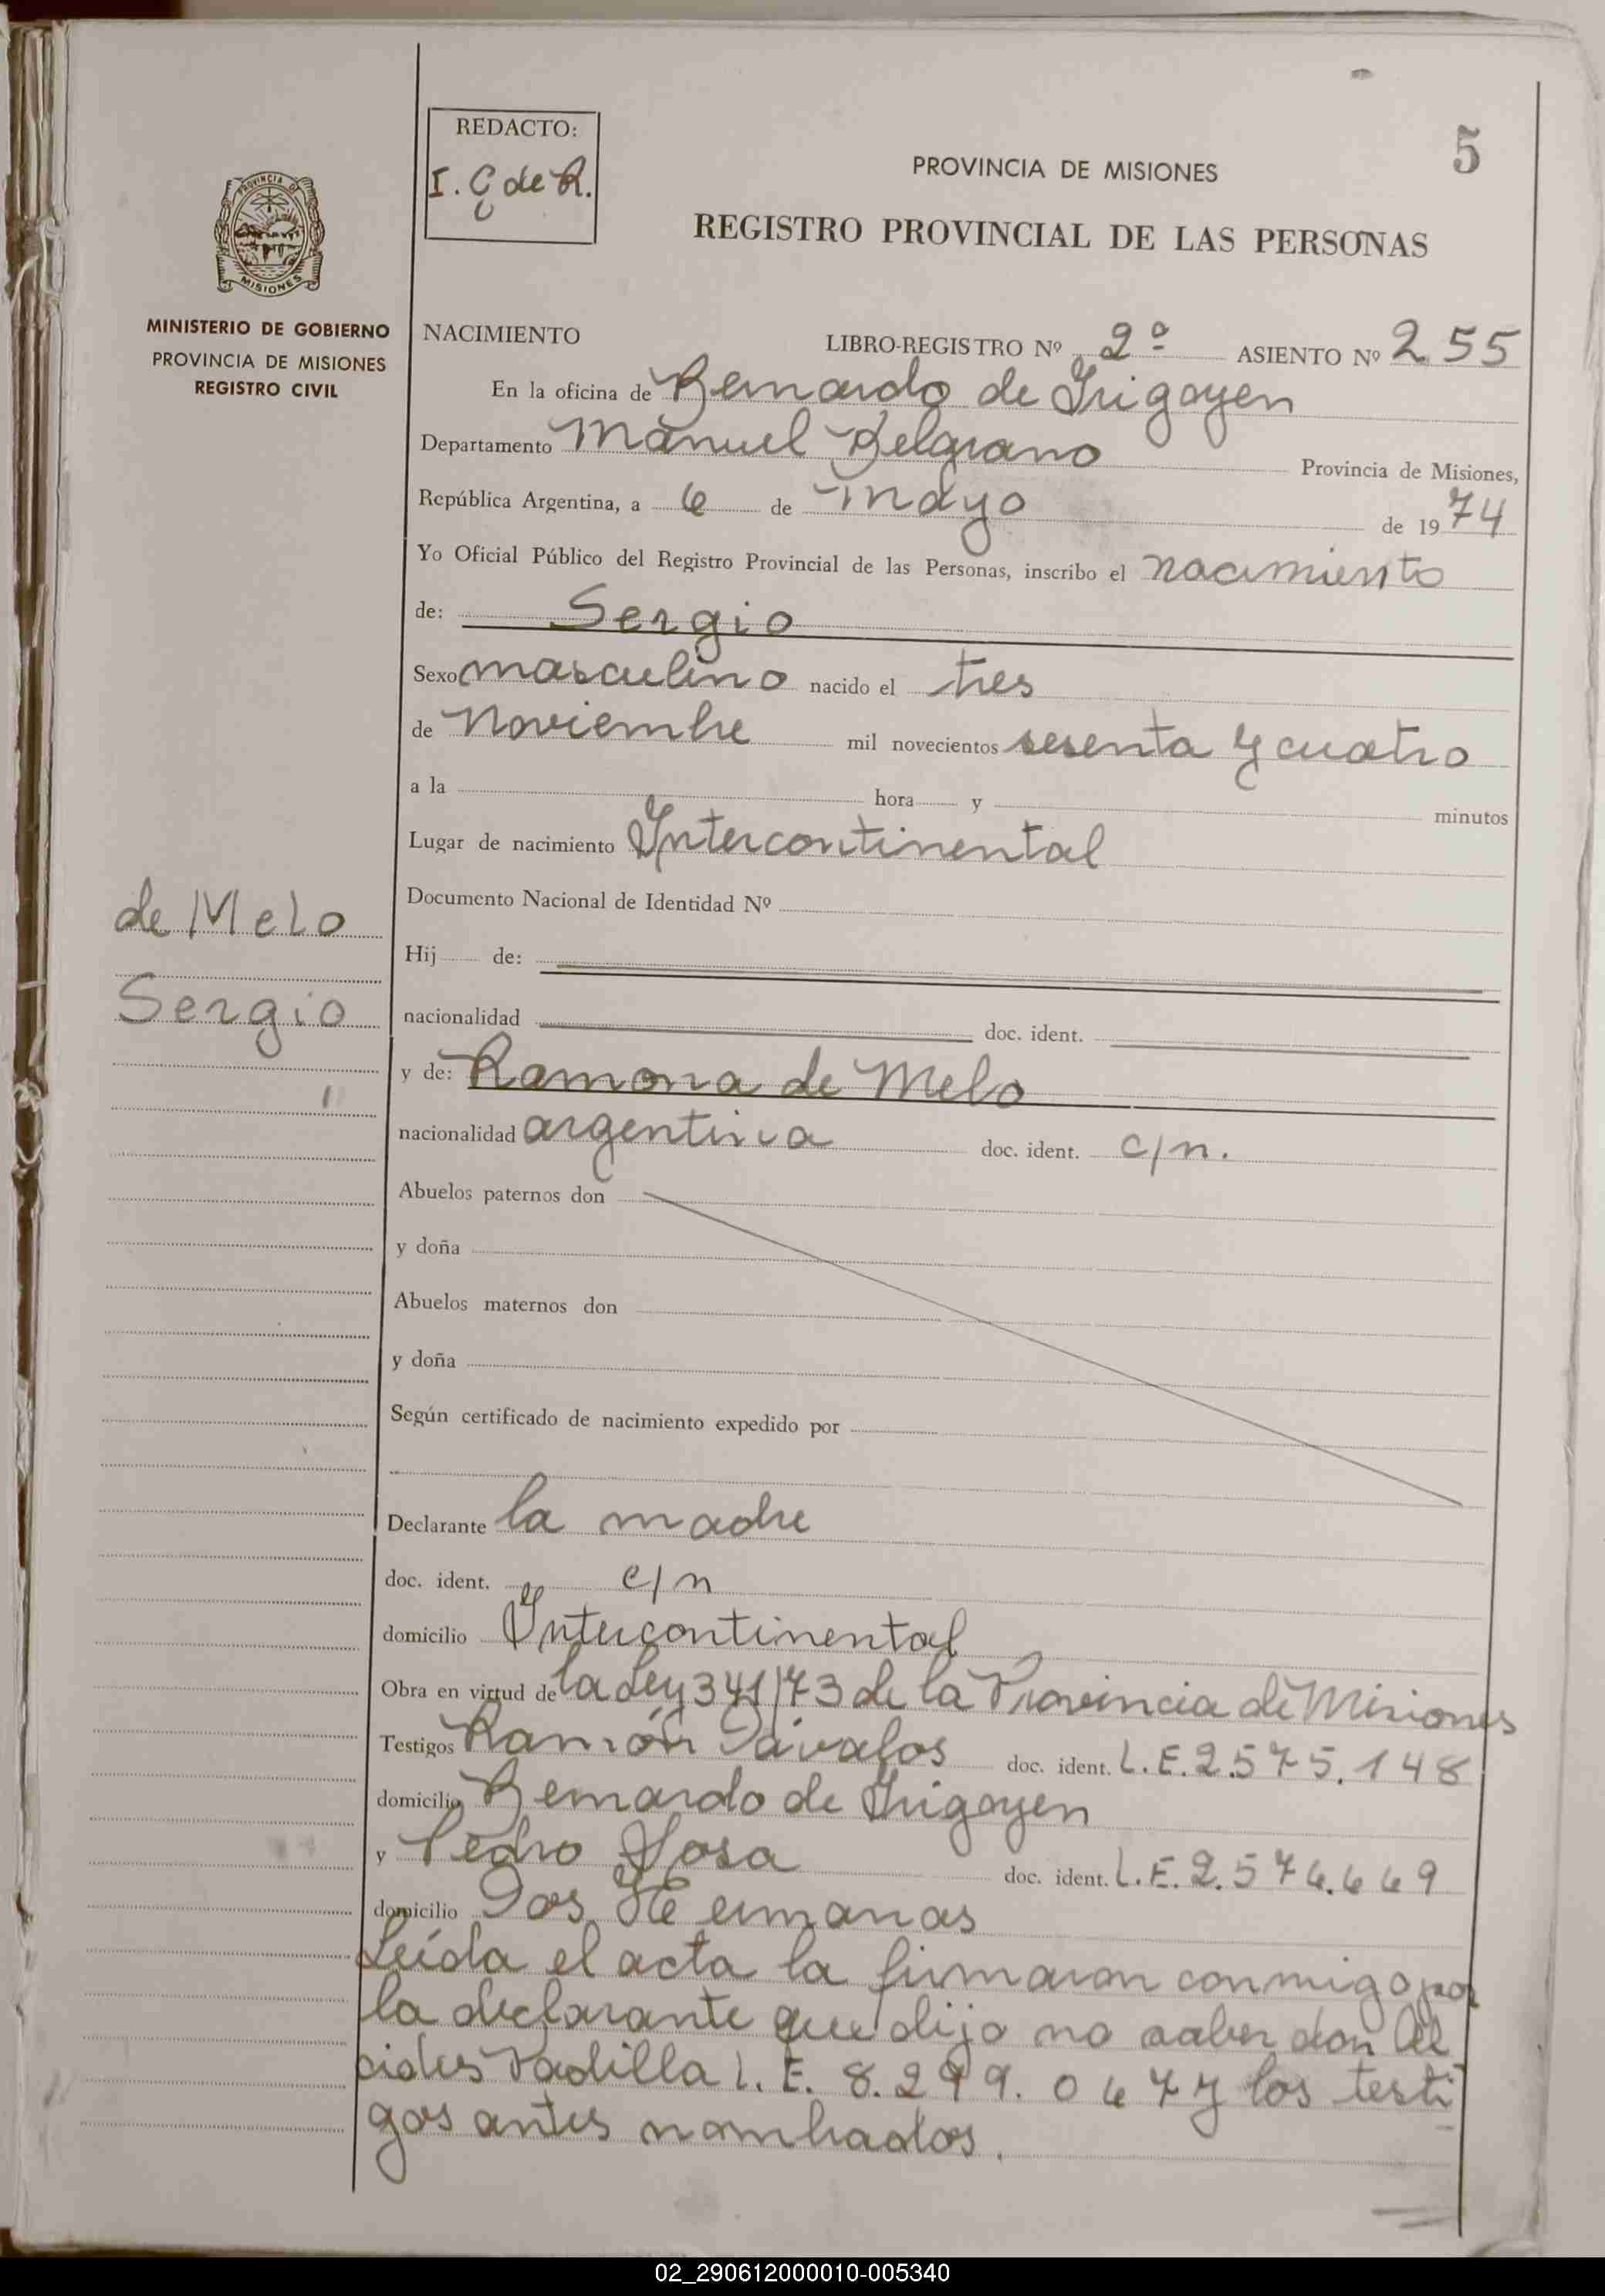 5
REDACTO:
I. C de R.
PROVINCIA DE MISIONES
REGISTRO PROVINCIAL DE LAS PERSONAS
PROVINCIA D
MISIONES
MINISTERIO DE GOBIERNO
PROVINCIA DE MISIONES
REGISTRO CIVIL
NACIMIENTO LIBRO-REGISTRO Nº 2º ASIENTO Nº 255
En la oficina de Bernardo de Irigoyen
Departamento Manuel Belgrano Provincia de Misiones,
República Argentina, a 6 de mayo de 1974
Yo Oficial Público del Registro Provincial de las Personas, inscribo el nacimiento
de: Sergio
Sexo masculino nacido el tres
de Noviembre mil novecientos sesenta y cuatro
a la hora y minutos
Lugar de nacimiento Intercontinental
Documento Nacional de Identidad Nº
de Melo
Hij de:
Sergio
nacionalidad doc. ident.
y de: Ramona de Melo
nacionalidad argentina doc. ident. c/n.
Abuelos paternos don
y doña
Abuelos maternos don
y doña
Según certificado de nacimiento expedido por
Declarante la madre
doc. ident. c/n
domicilio Intercontinental
Obra en virtud de la Ley 341/73 de la Provincia de Misiones
Testigos Ramón Dávalos doc. ident. L.E. 2.575.148
domicilio Bernardo de Irigoyen
y Pedro Sosa doc. ident. L.E. 2.576.669
domicilio Dos Hermanas
Leída el acta la firmaron conmigo por
la declarante que dijo no saber don Al
cides Padilla L.E. 8.299.067 y los testi
gos antes nombrados.
02_290612000010-005340